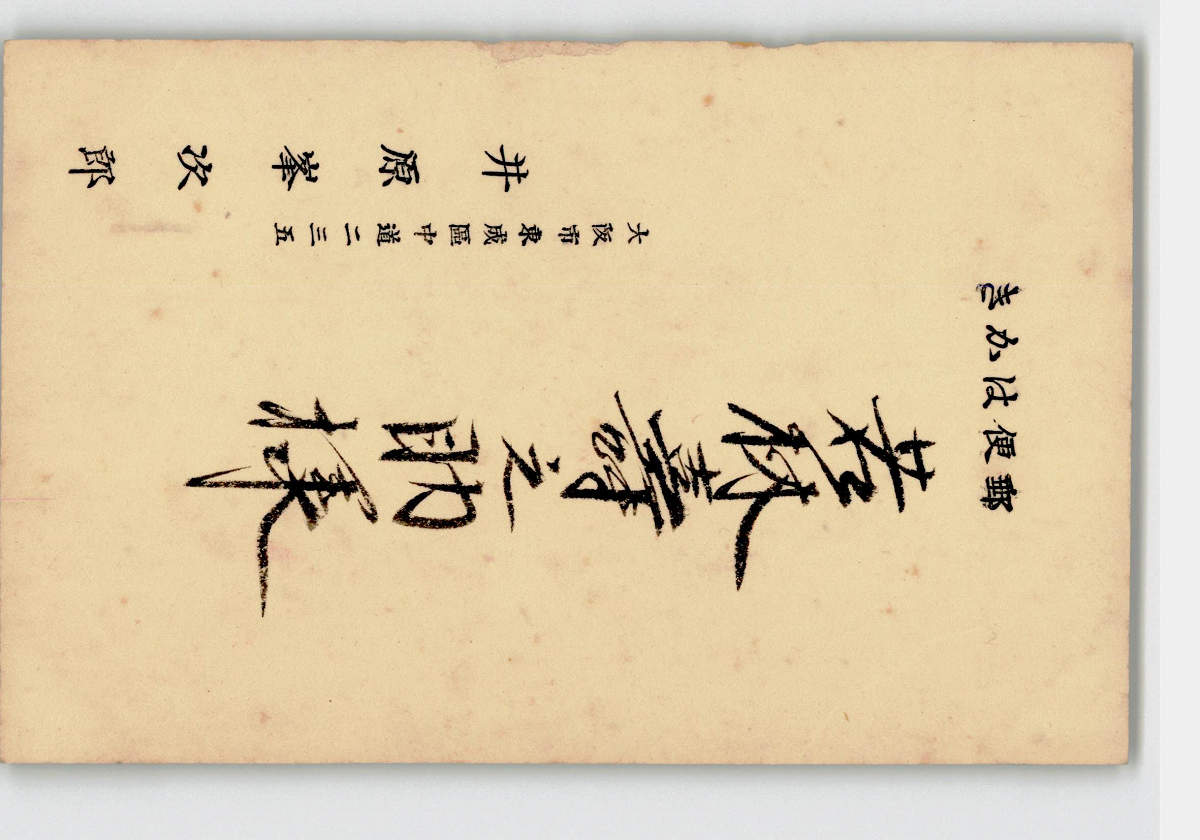 郵便はかき
若林壽之助様
大阪市東成區中道二三五
井原峯次郎